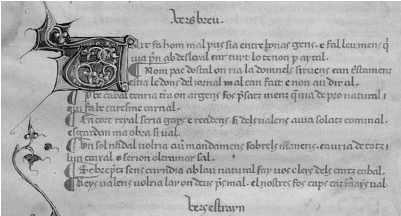 vers breu.
Tart fa hom mal pus sia entre bonas gens. e fal leu mens q
ab deslayal car tuyt lo tenon p aytal.
Nom pac dostal on ria la domnels siruens can estamens
estia le dons del iornal mal can fait e non au dir al.
cabal tenria on argens fos psatz mens q uia de pro natural
fa be caresme carnal.
En cort royal seria gays e rizens si dels ualens auia solatz cominal
esgardan ma obra si ual.
Un sol nadal uolria mandamens sobrels manens de totz
lun carnal e serion oltramar sal.
sens lau natural fay uos cleys dels cabal
Reys ualens uolria lay on deus pres mal el nostres fos caps car mays ual.
vers estrayn